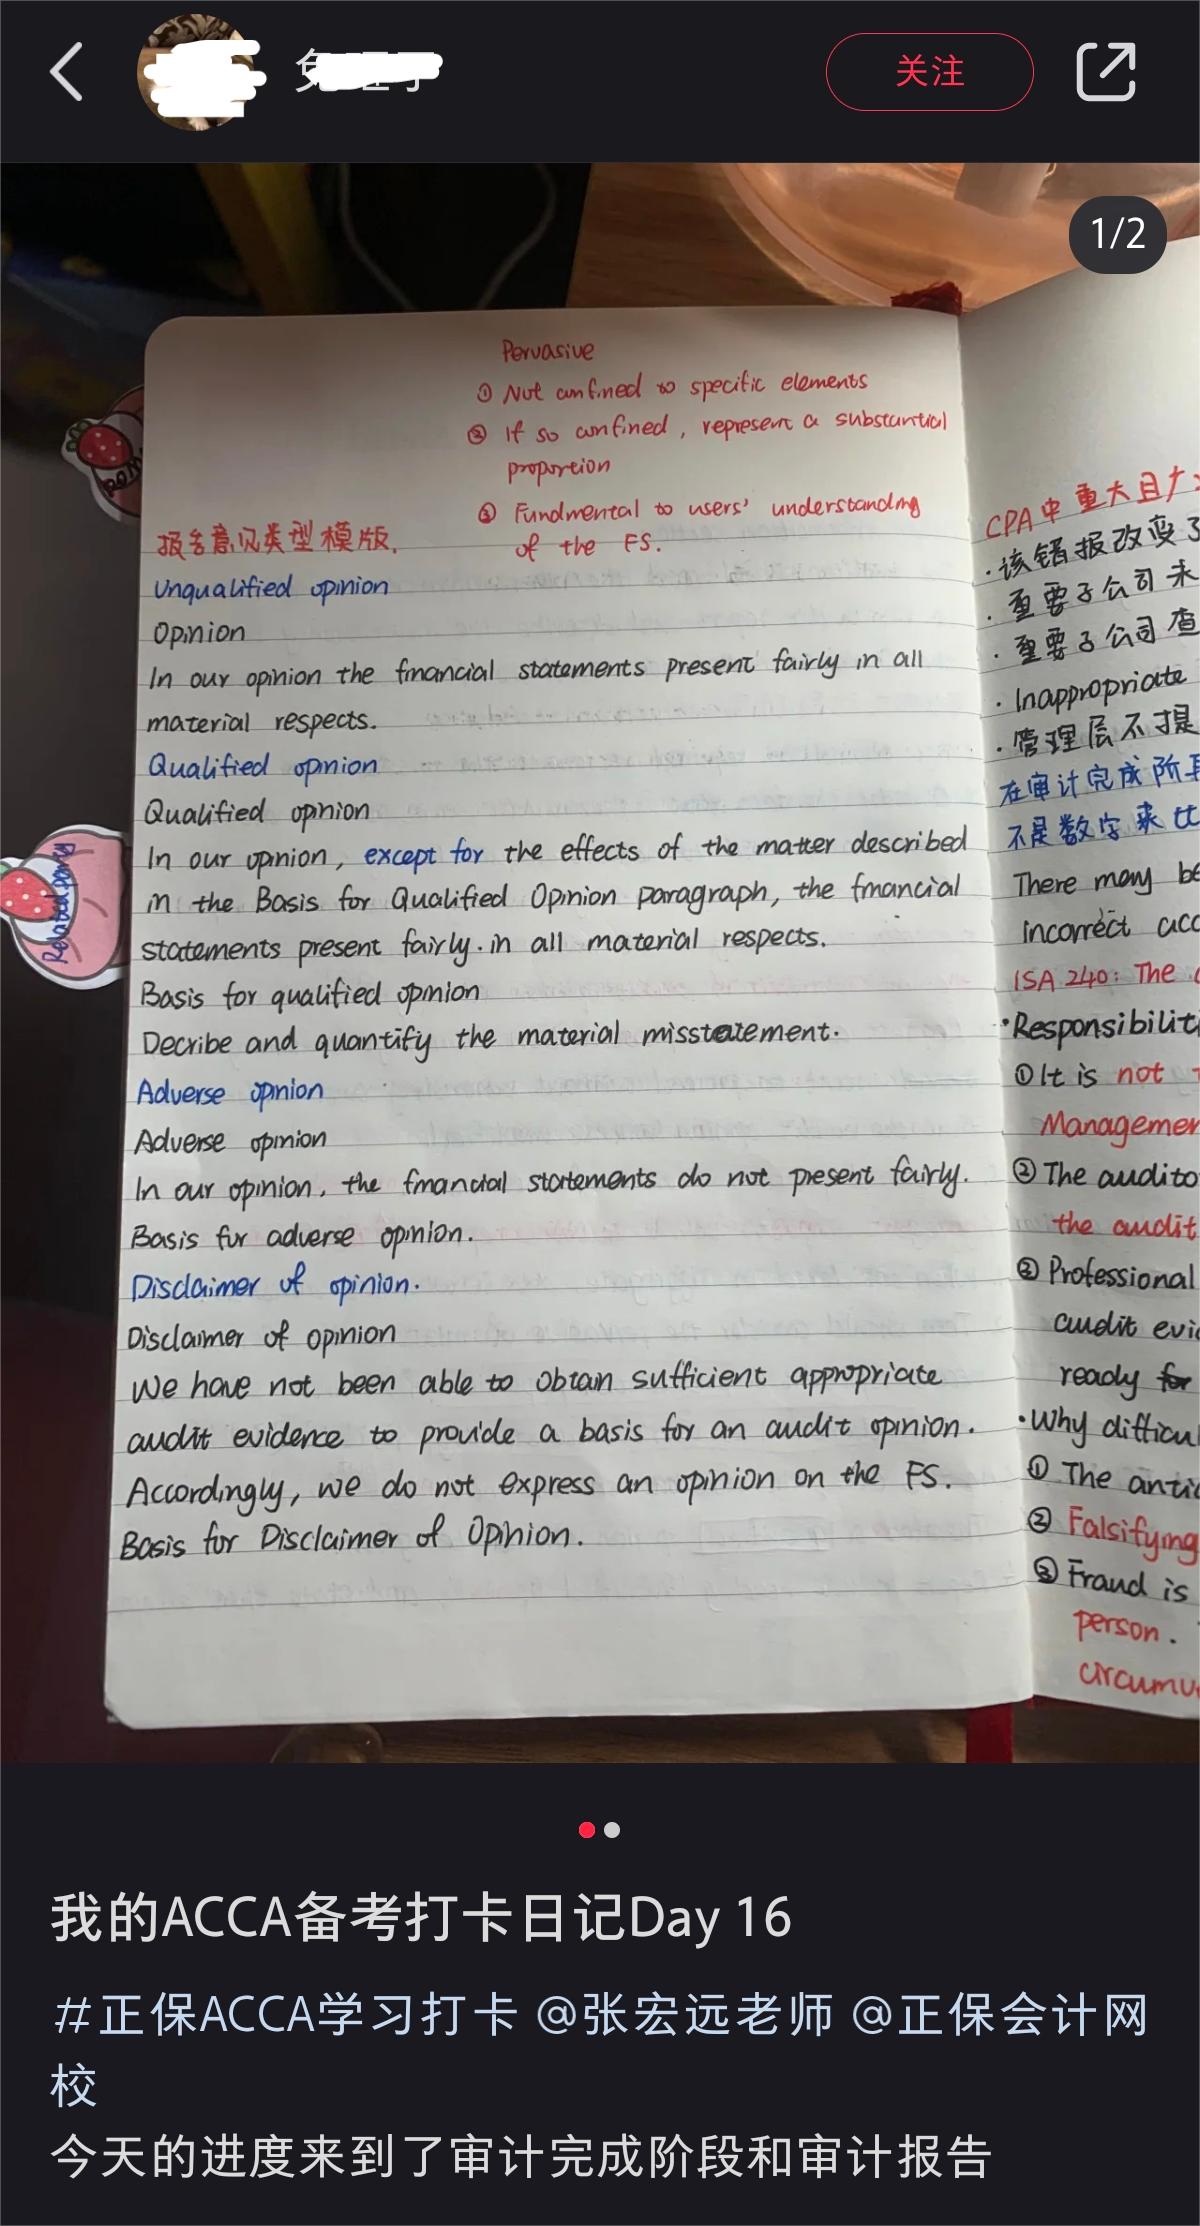 关注
1/2
Pervasive
① Not confined to specific elements
② If so confined, represent a substantial
proportion
③ Fundmental to users' understanding
of the FS.
报告意见类型模版.
Unqualified opinion
Opinion
In our opinion the financial statements present fairly in all
material respects.
Qualified opinion
Qualified opinion
In our opinion, except for the effects of the matter described
in the Basis for Qualified Opinion paragraph, the financial
statements present fairly. in all material respects.
Basis for qualified opinion
Decribe and quantify the material misstatement.
Adverse opinion
Adverse opinion
In our opinion, the financial statements do not present fairly.
Basis for adverse opinion.
Disclaimer of opinion.
Disclaimer of opinion
We have not been able to obtain sufficient appropriate
audit evidence to provide a basis for an audit opinion.
Accordingly, we do not express an opinion on the FS.
Basis for Disclaimer of Opinion.
Related party
CPA中重大且广
·该错报改变了
·重要子公司未
·重要子公司查
·Inappropriate
·管理层不提
在审计完成阶段
不是数字来比
There may be
incorrect acc
ISA 240: The
·Responsibiliti
①It is not
Managemen
②The audito
the audit
③Professional
audit evi
ready for
·Why difficul
① The anti
② Falsifying
③ Fraud is
person.
circumv
我的ACCA备考打卡日记Day 16
#正保ACCA学习打卡 @张宏远老师 @正保会计网
校
今天的进度来到了审计完成阶段和审计报告